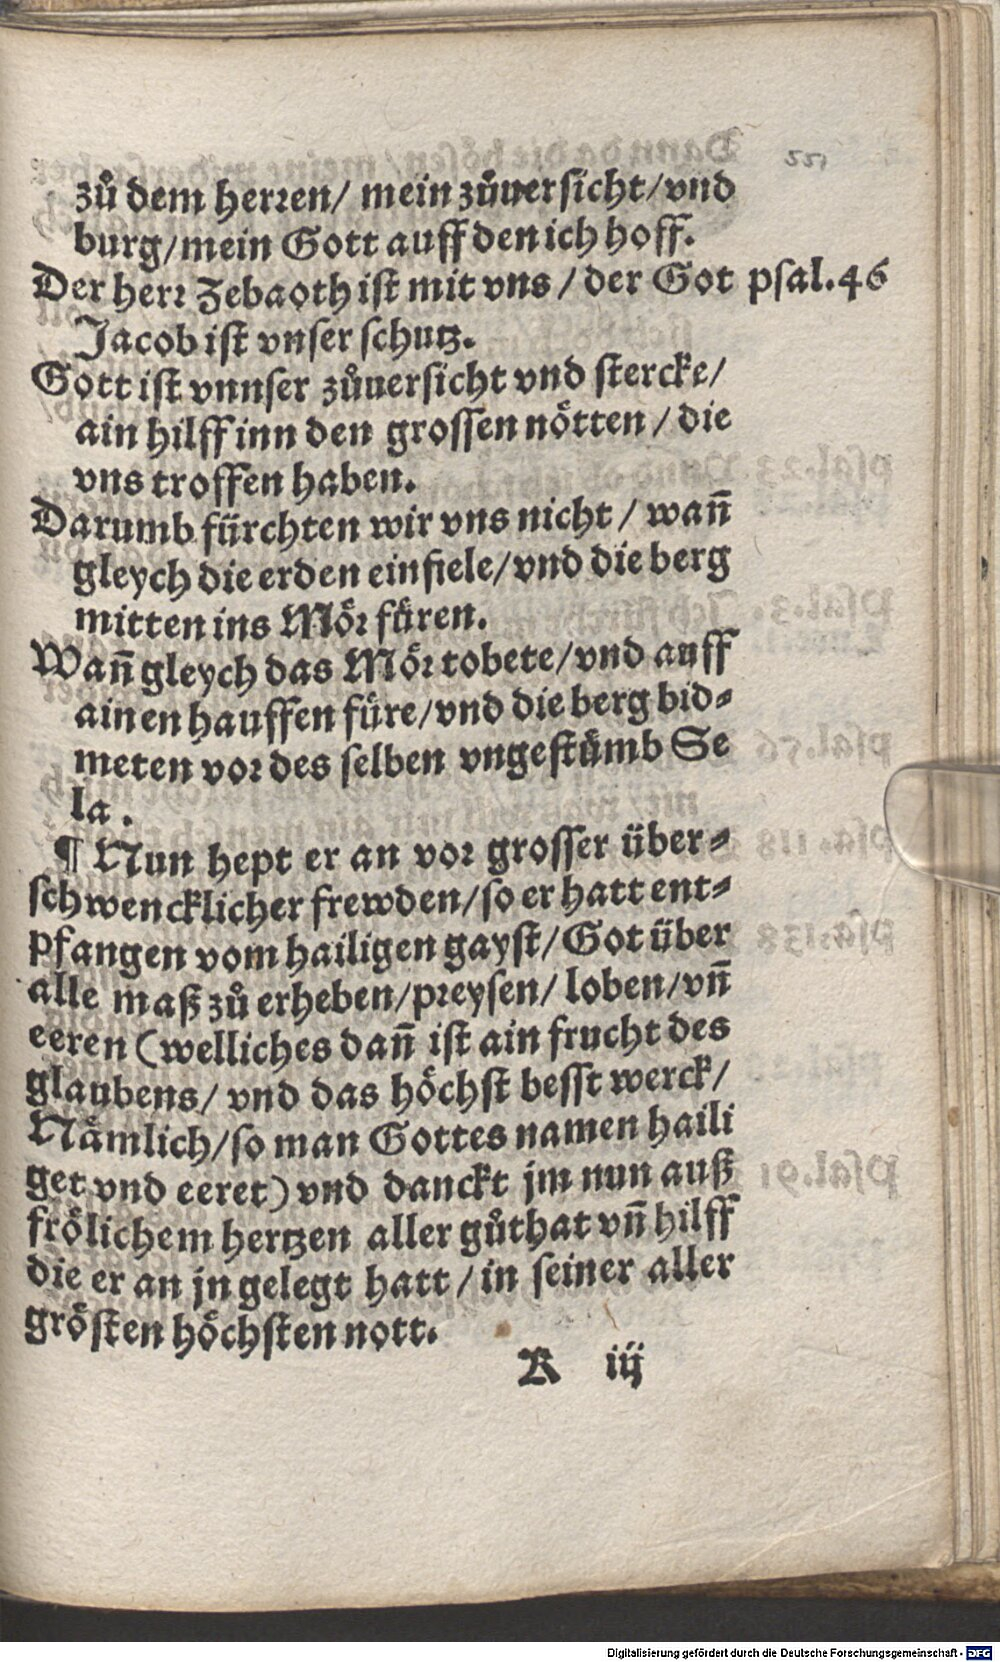 zů dem herren/ mein zůuersicht/vnd
burg/mein Gott auff den ich hoff.
Der herr Zebaoth ist mit vns / der Got psal.46
Jacob ist vnser schutz.
Gott ist vnnser zůuersicht vnd stercke/
ain hilff inn den grossen nötten / die
vns troffen haben.
Darumb fürchten wir vns nicht / wañ
gleych die erden einfiele/vnd die berg
mitten ins Mör füren.
Wañ gleych das Mör tobete/vnd auff
ainen hauffen füre/vnd die berg bid⸗
meten vor des selben vngestümb Se
la.
¶ Nun hept er an vor grosser über⸗
schwencklicher frewden/so er hatt ent⸗
pfangen vom hailigen gayst/Got über
alle maß zů erheben/preysen/ loben/vñ
eeren (welliches dañ ist ain frucht des
glaubens/ vnd das höchst besst werck/
Nämlich/so man Gottes namen haili
get vnd eeret) vnd danckt jm nun auß
frölichem hertzen aller gůthat vñ hilff
die er an jn gelegt hatt / in seiner aller
grösten höchsten nott.
R iij
Digitalisierung gefördert durch die Deutsche Forschungsgemeinschaft - DFG